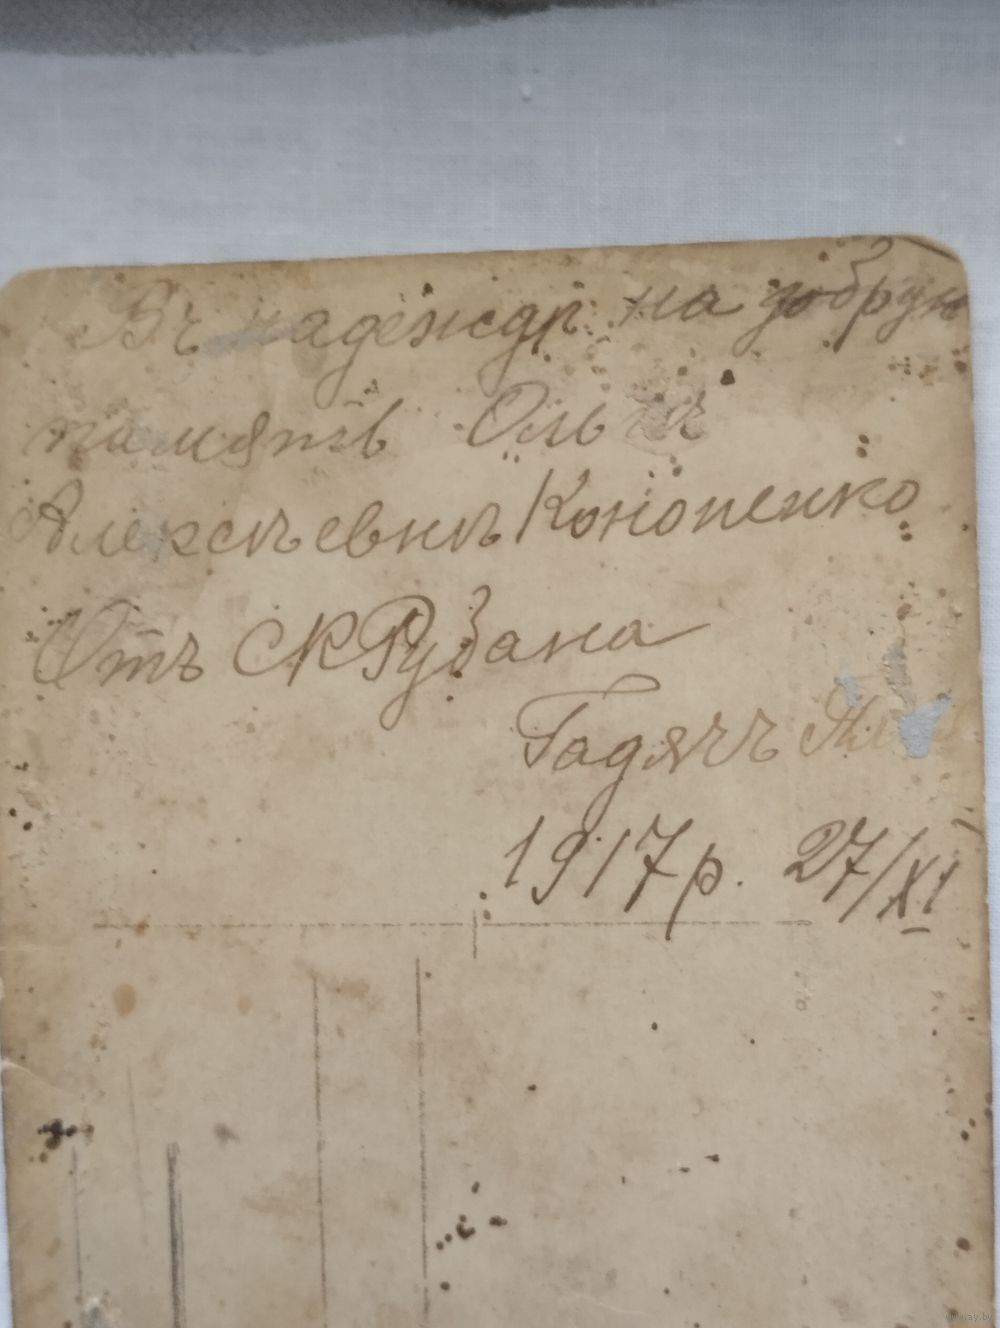 Въ надеждѣ на добрую
память Ольгѣ
Алексѣевнѣ Кононенко
Отъ СК Рубана
Гадячъ
1917 р. 27/XI
www.ay.by